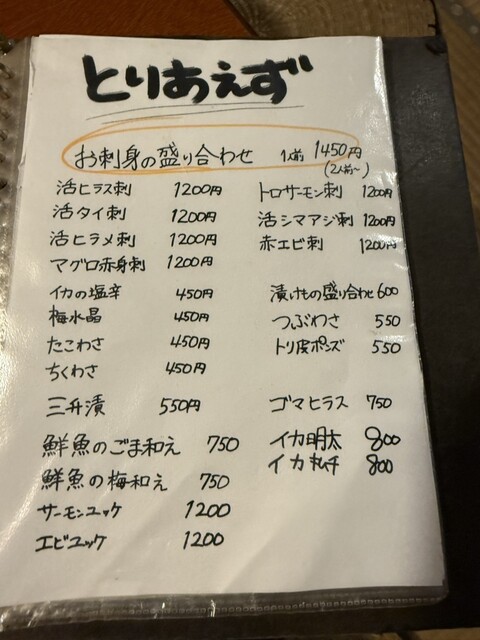 とりあえず
お刺身の盛り合わせ 1人前 1450円
(2人前~)
活ヒラス刺 1200円
活タイ刺 1200円
活ヒラメ刺 1200円
マグロ赤身刺 1200円
イカの塩辛 450円
梅水晶 450円
たこわさ 450円
ちくわさ 450円
三升漬 550円
鮮魚のごま和え 750
鮮魚の梅和え 750
サーモンユッケ 1200
エビユッケ 1200
トロサーモン刺 1200円
活シマアジ刺 1200円
赤エビ刺 1200円
漬けもの盛り合わせ 600
つぶわさ 550
トリ皮ポンズ 550
ゴマヒラス 750
イカ明太 800
イカキムチ 800